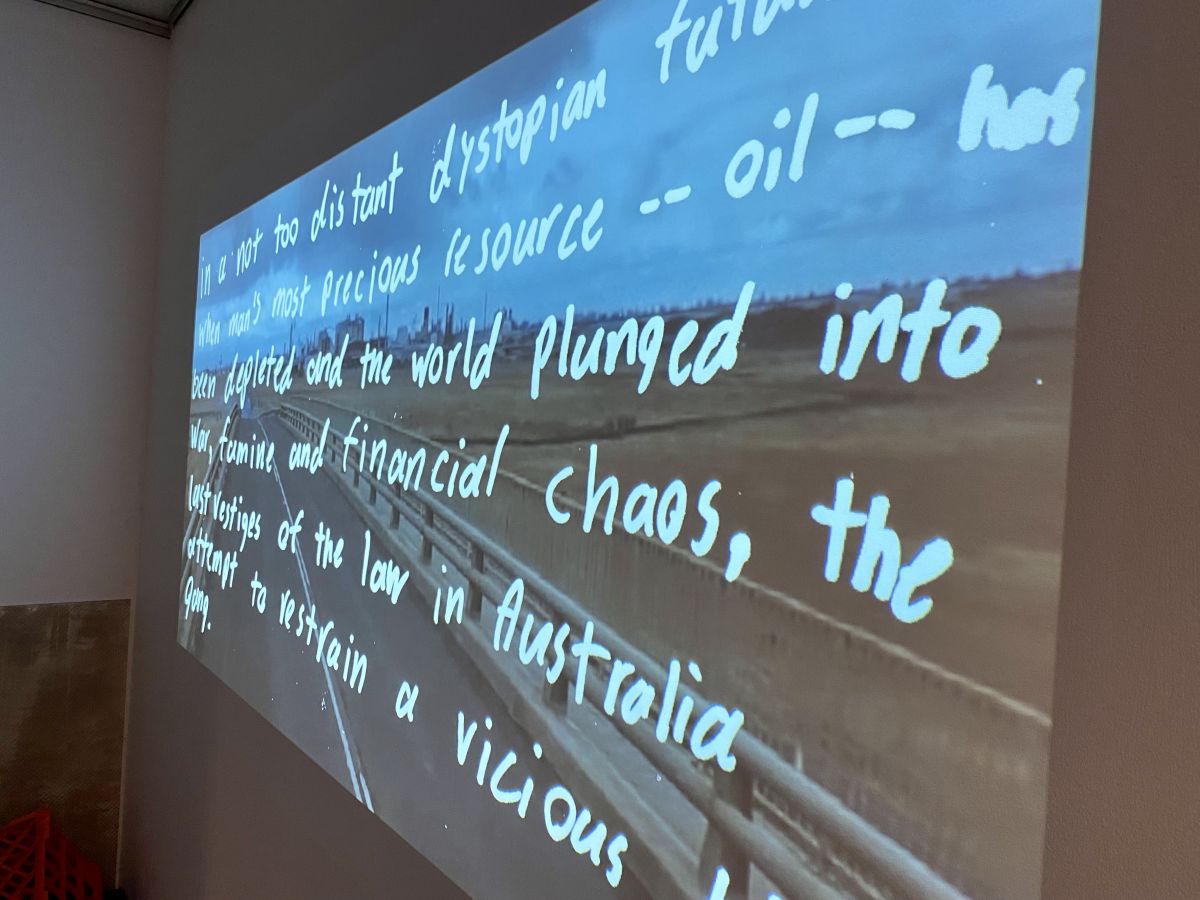 in a not too distant dystopian
when man's most precious resource -- oil -- has
been depleted and the world plunged into
war, famine and financial chaos, the
last vestiges of the law in Australia
attempt to restrain a vicious
gang.